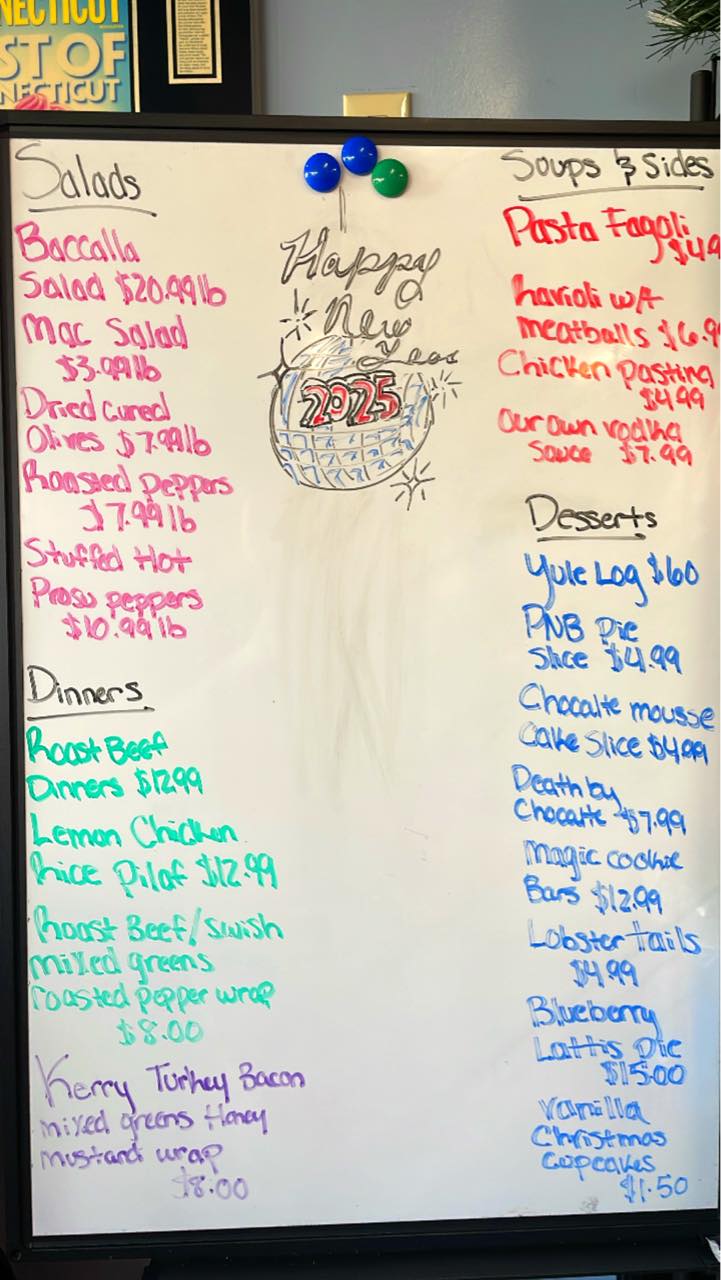 NECTICUT
ST OF
NNECTICUT
Salads
Baccalla
Salad $20.99 lb
Mac Salad
$3.99 lb
Dried cured
Olives $7.99 lb
Roasted peppers
$7.99 lb
Stuffed Hot
Prosu peppers
$10.99 lb
Dinners
Roast Beef
Dinners $12.99
Lemon Chicken
Rice Pilaf $12.99
Roast Beef/swish
mixed greens
roasted pepper wrap
$8.00
Kerry Turkey Bacon
mixed greens Honey
mustard wrap
$8.00
Happy
New
Year
2025
Soups & Sides
Pasta Fagoli
$4.9
Ravioli w/
meatballs $6.9
Chicken pastina
$4.99
our own vodka
Sauce $7.99
Desserts
Yule Log $60
PNB Pie
Slice $4.99
Chocalte mousse
Cake Slice $4.99
Death by
Chocalte $7.99
magic cookie
Bars $12.99
Lobster tails
$4.99
Blueberry
Lattis Pie
$15.00
Vanilla
Christmas
cupcakes
$1.50